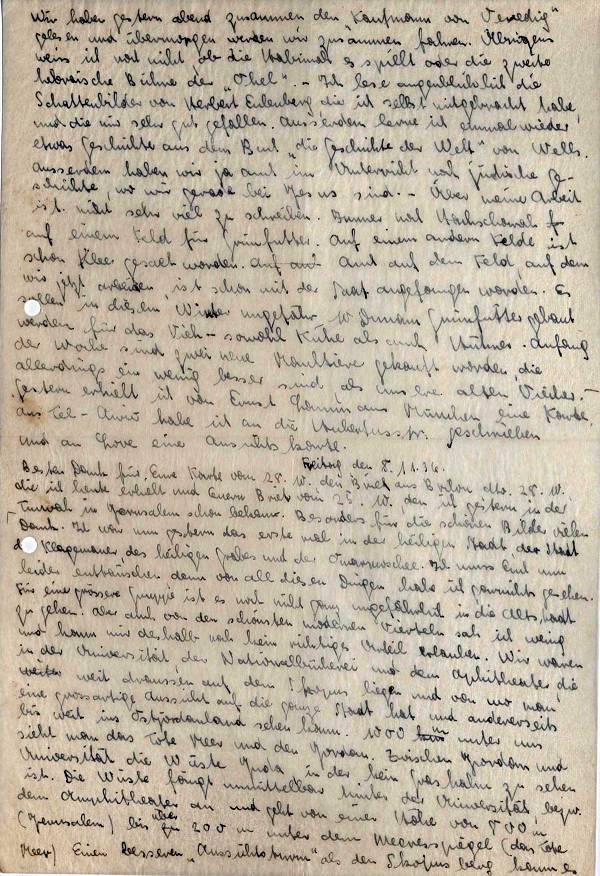 Wir haben gestern abend zusammen den „Kaufmann von Venedig"
gelesen und übermorgen werden wir zusammen fahren. Übrigens
weiss ich noch nicht ob die Habimah es spielt oder die zweite
hebräische Bühne der „Ohel". - Ich lese augenblicklich die
Schattenbilder von Herbert Eulenberg, die ich selbst mitgebracht habe,
und die mir sehr gut gefallen. Ausserdem lerne ich einmal wieder
etwas Geschichte aus dem Buch „die Geschichte der Welt" von Wells.
Ausserdem haben wir ja auch im Unterricht noch jüdische Ge-
schichte, wo wir gerade bei Jesus sind. - Über meine Arbeit
ist nicht sehr viel zu schreiben. Immer noch
auf einem Feld für Grünfutter. Auf einem andern Felde ist
schon Klee gesaet worden. Auch auf dem Feld, auf dem
wir jetzt arbeiten, ist schon mit der Saat angefangen worden. Es
sollen in diesem Winter ungefähr 10 Dunam Grünfutter gebaut
werden für das Vieh - sowohl Kühe als auch Hühner. Anfang
der Woche sind zwei neue Maultiere gekauft worden, die
allerdings ein wenig besser sind als unsere alten Viecher. -
Gestern erhielt ich von Ernst aus München eine Karte.
Aus Tel-Awiw habe ich an die geschrieben
und an Lore eine Ansichtskarte.
Freitag den 8.11.36.
Besten Dank für Eure Karte vom 28. 10. den Brief aus Brilon dto. 28. 10.
die ich heute erhielt und Euern Brief vom 25. 10., den ich gestern in der
in Jerusalem schon bekam. Besonders für die schönen Bilder vielen
Dank. Ich war nun gestern das erste mal in der heiligen Stadt, der Stadt
der Klagemauer, des heiligen Grabes und der Omarmoschee. Ich muss Euch nun
leider enttäuschen denn von all diesen Dingen habe ich garnichts gesehen.
Für eine grössere Gruppe ist es noch nicht ganz ungefährlich in die Altstadt
zu gehen. Aber auch von den schönsten modernen Vierteln sah ich wenig
und kann mir deshalb noch kein richtiges Urteil erlauben. Wir waren
in der Universität, der Nationalbücherei und dem Aphitheater, die
weit draussen auf dem Skopus liegen und von wo man
eine grossartige Aussicht auf die ganze Stadt hat und andererseits
bis weit ins Ostjordanland sehen kann. 1000 m unter uns
sieht man das Tote Meer und den Jordan. Zwischen Jordan und
Universität die Wüste Juda in der kein Grashalm zu sehen
ist. Die Wüste fängt unmittelbar hinter der Universität, bezw.
dem Amphitheater an und geht von einer Höhe von 800 m
(Jerusalem) bis über 200 m unter dem Meeresspiegel (das Tote
Meer) Einen besseren „Aussichtsturm" als den Skopusberg kann es